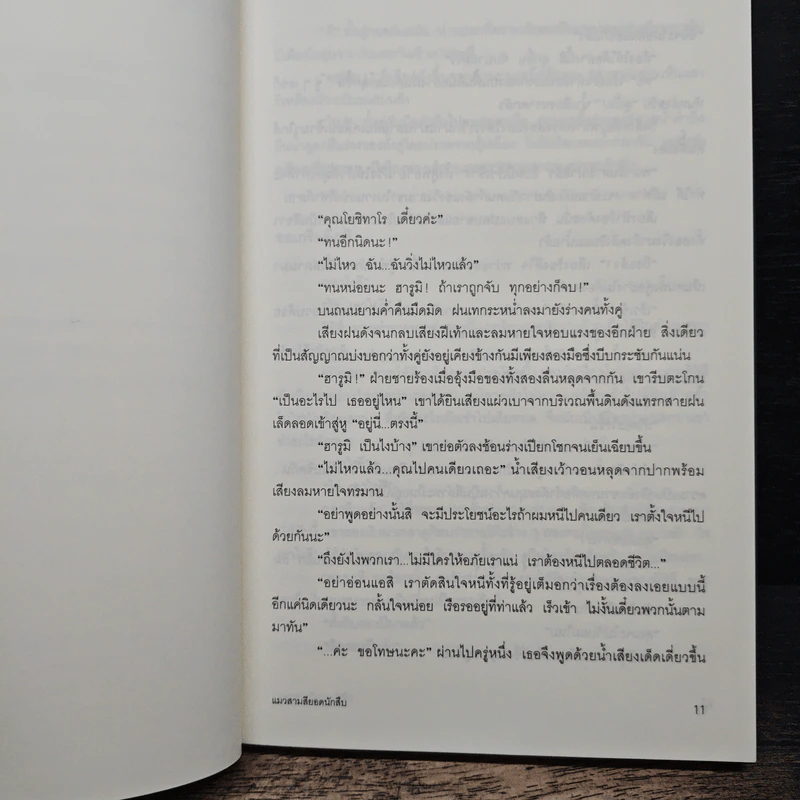 “คุณโยชิทาโร เดี๋ยวค่ะ”
“ทนอีกนิดนะ!”
“ไม่ไหว ฉัน...ฉันวิ่งไม่ไหวแล้ว”
“ทนหน่อยนะ ฮารูมิ! ถ้าเราถูกจับ ทุกอย่างก็จบ!”
บนถนนยามค่ำคืนมืดมิด ฝนเทกระหน่ำลงมายังร่างคนทั้งคู่
เสียงฝนดังจนกลบเสียงฝีเท้าและลมหายใจหอบแรงของอีกฝ่าย สิ่งเดียว
ที่เป็นสัญญาณบ่งบอกว่าทั้งคู่ยังอยู่เคียงข้างกันมีเพียงสองมือซึ่งบีบกระชับกันแน่น
“ฮารูมิ!” ฝ่ายชายร้องเมื่ออุ้งมือของทั้งสองลื่นหลุดจากกัน เขารีบตะโกน
“เป็นอะไรไป เธออยู่ไหน” เขาได้ยินเสียงแผ่วเบาจากบริเวณพื้นดินดังแทรกสายฝน
เล็ดลอดเข้าสู่หู “อยู่นี่...ตรงนี้”
“ฮารูมิ เป็นไงบ้าง” เขาย่อตัวลงช้อนร่างเปียกโชกจนเย็นเฉียบขึ้น
“ไม่ไหวแล้ว...คุณไปคนเดียวเถอะ” น้ำเสียงเว้าวอนหลุดจากปากพร้อม
เสียงลมหายใจทรมาน
“อย่าพูดอย่างนั้นสิ จะมีประโยชน์อะไรถ้าผมหนีไปคนเดียว เราตั้งใจหนีไป
ด้วยกันนะ”
“ถึงยังไงพวกเรา...ไม่มีใครให้อภัยเราแน่ เราต้องหนีไปตลอดชีวิต...”
“อย่าอ่อนแอสิ เราตัดสินใจหนีทั้งที่รู้อยู่เต็มอกว่าเรื่องต้องลงเอยแบบนี้
อีกแค่นิดเดียวนะ กลั้นใจหน่อย เรือรออยู่ที่ท่าแล้ว เร็วเข้า ไม่งั้นเดี๋ยวพวกนั้นตาม
มาทัน”
“...ค่ะ ขอโทษนะคะ” ผ่านไปครู่หนึ่ง เธอจึงพูดด้วยน้ำเสียงเด็ดเดี่ยวขึ้น
แมวสามสียอดนักสืบ
11